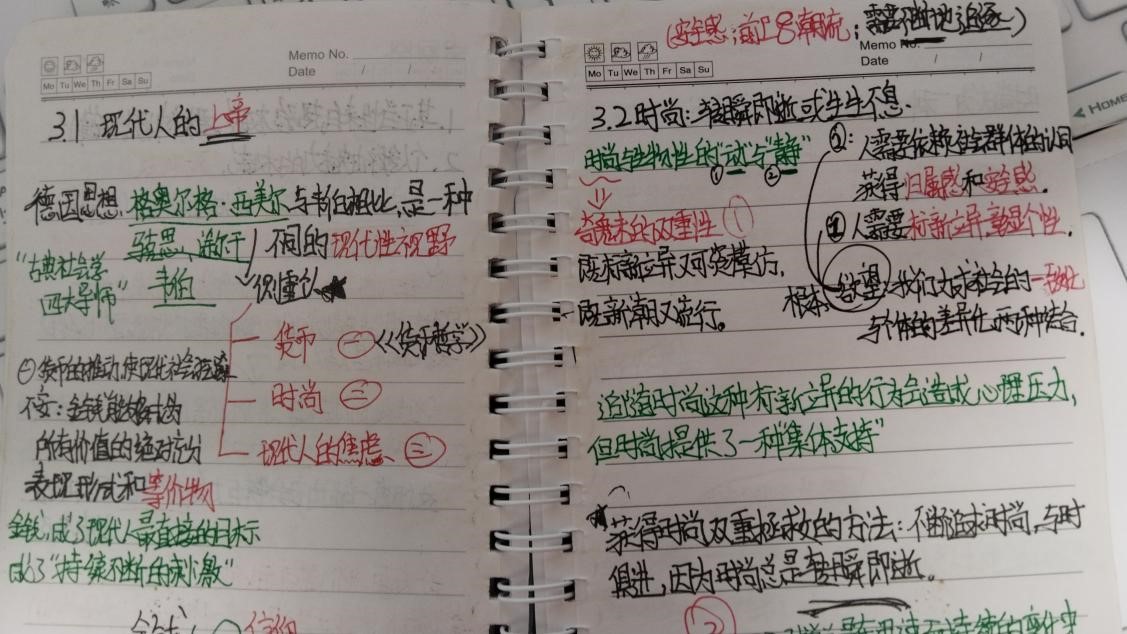 Memo No.
Date / /
Mo Tu We Th Fr Sa Su
3.1 现代人的上帝
德国思想 格奥尔格·西美尔与韦伯相比,是一种
马克思、涂尔干 不同的现代性视野
"古典社会学 韦伯
四大导师"
货币 ㊀《货币哲学》
时尚 ㊁
现代人的焦虑 ㊂
㊀货币的推动,使现代社会
不安:金钱能够成为
所有价值的绝对充分
表现形式和等价物
金钱,成了现代人最直接的目标
成了"持续不断的刺激"
信仰
(安全感;前上8潮流;需要不断地追逐)
Memo No.
Date / /
Mo Tu We Th Fr Sa Su
HOME
3.2 时尚:转瞬即逝或生生不息.
时尚与生物性的"动"与"静"
① ②
②:人需要依赖社会群体的认同
获得归属感和安全感.
①人需要标新立异,彰显个性.
⇓
齐美尔的双重性①
既标新立异又可笑模仿,
既新潮又流行。
根本 欲望:我们对求社会的一致化
与个体的差异化两种结合.
追逐时尚这种标新立异的行为会造成心理压力,
但时尚提供了一种"集体支持"
★获得时尚双重拯救的方法:不断追求时尚,与时
俱进,因为时尚总是转瞬即逝。
②